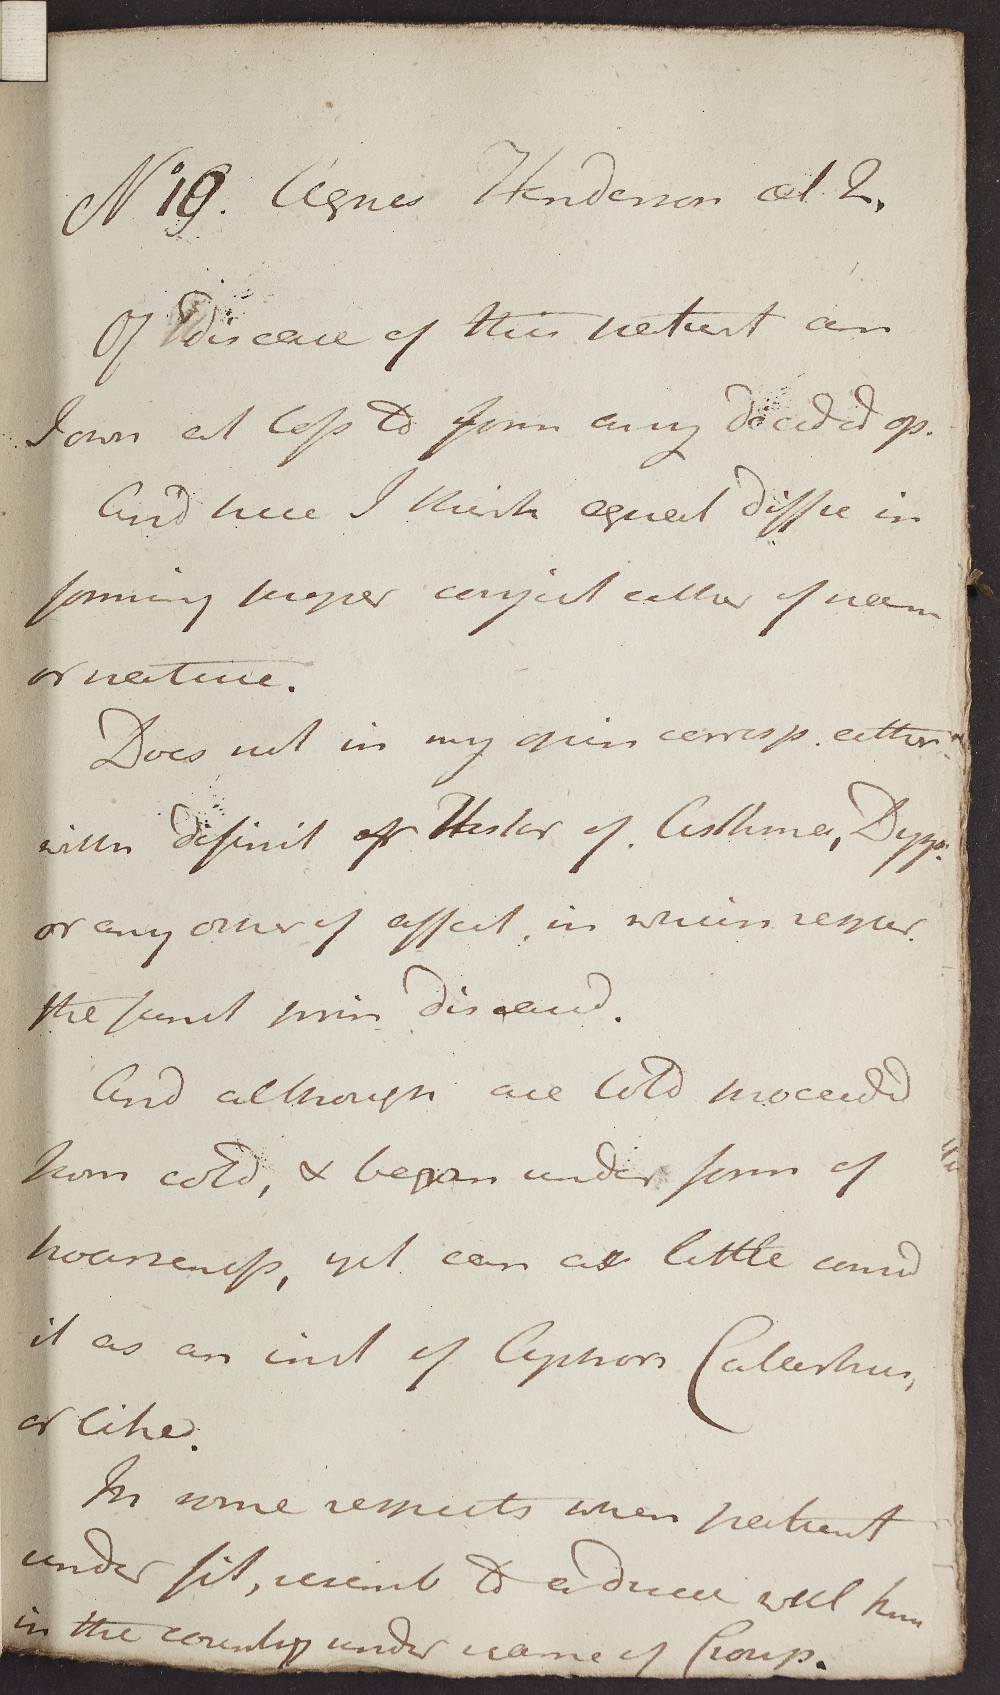 No 19. Agnes Henderson aet 2.
Of disease of this patient am
I own at loss to form any decided op.
And here I think equal diffic in
forming proper conject either of nam
or nature.
Does not in my opin corresp. either
with definit or Histor of Asthma, Dysp.
or any other of affect, in which respir.
the funct prin diseased.
And although are told proceeded
from cold, & began under form of
hoarseness, yet can as little consid
it as an inst of Aphon Catarrhus,
or like.
In some respects when patient
under fit, resemb to a disease well kno
in the country under name of Croup.